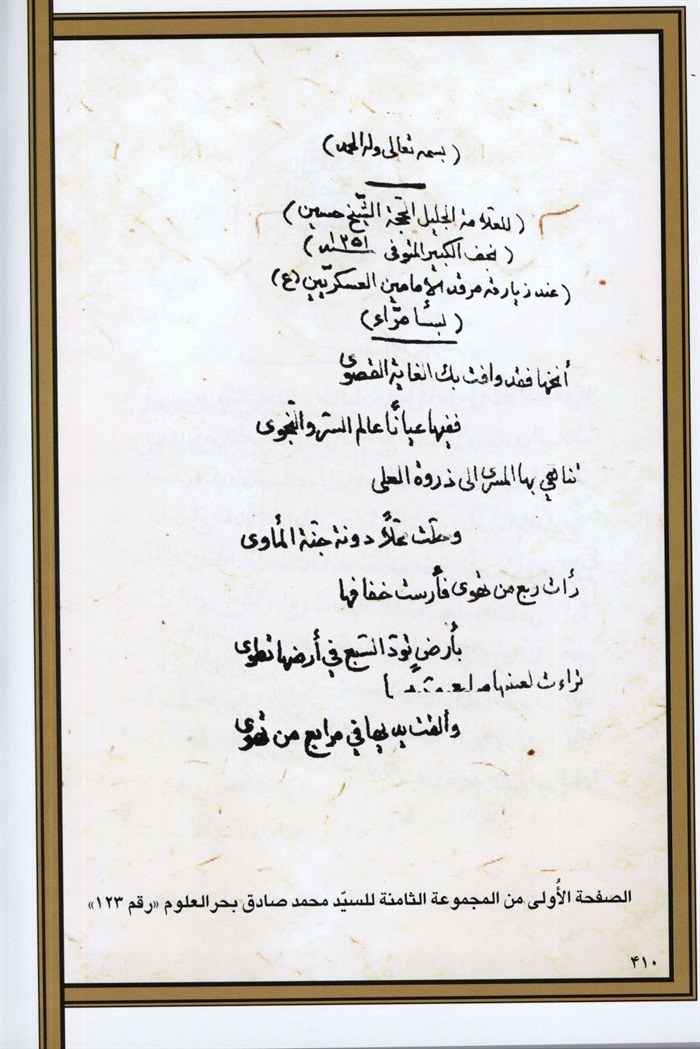 (بسمه تعالى وله الحمد)
(للعلامة الجليل الحجة الشيخ حسين)
(نجف الكبير المتوفى سنة ١٢٥١)
(عند زيارته مرقد الإمامين العسكريّين (ع)
(بسامرّاء)
أنخها فقد وافت بك الغاية القصوى
ففيها عياناً عالم السرّ والنجوى
تناهى بها المسرى الى ذروة العلى
وحلّت محلّاً دونه جنّة المأوى
رأت ربع من تهوى فأرست خفافها
بأرضٍ تودّ السبع في أرضها تطوى
تراءت لعينها
وألقت يديها في مرابع من تهوى
الصفحة الأُولى من المجموعة الثامنة للسيّد محمد صادق بحر العلوم «رقم ١٢٣»
٤١٠